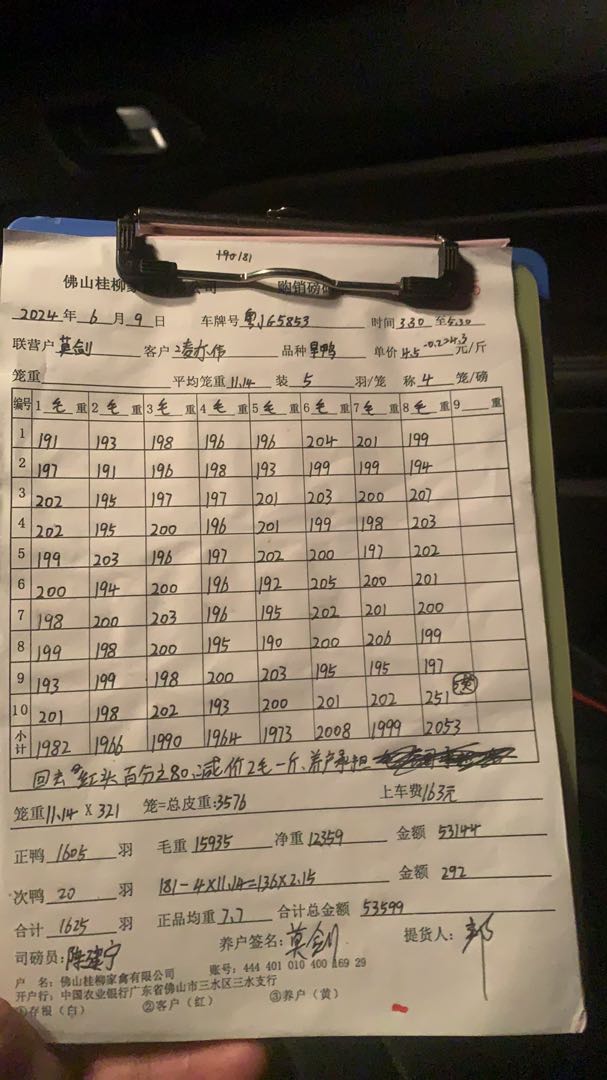 +90181
佛山桂柳家 公司 购销磅
2024年 6 月 9 日 车牌号 粤JG5853 时间 3.30 至 5.30
联营户 莫剑 客户 品种 旱鸭 单价 4.5-0.2=4.3 元/斤
笼重 平均笼重 11.14 装 5 羽/笼 称 4 笼/磅
编号 1 毛 重 2 毛 重 3 毛 重 4 毛 重 5 毛 重 6 毛 重 7 毛 重 8 毛 重 9 重
1 191 193 198 196 196 204 201 199
2 197 191 196 198 193 199 199 194
3 202 195 197 197 201 203 200 207
4 202 195 200 196 201 199 198 203
5 199 203 196 197 202 200 197 202
6 200 194 200 196 192 205 200 201
7 198 200 203 196 195 202 201 200
8 199 198 200 195 190 200 206 199
9 193 199 198 200 203 195 195 197
10 201 198 202 193 200 201 202 251 5笼
小计 1982 1966 1990 1964 1973 2008 1999 2053
回去红头百分之80、减价2毛一斤、养户承担
笼重 11.14 X 321 笼=总皮重:3576 上车费163元
正鸭 1605 羽 毛重 15935 净重 12359 金额 53144
次鸭 20 羽 181-4X11.14=136X2.15 金额 292
合计 1625 羽 正品均重 7.7 合计总金额 53599
司磅员: 陈建宁 养户签名: 莫剑 提货人:
户 名: 佛山桂柳家禽有限公司 账号: 444 401 010 400 169 29
开户行: 中国农业银行广东省佛山市三水区三水支行
①存根(白) ②客户(红) ③养户(黄)